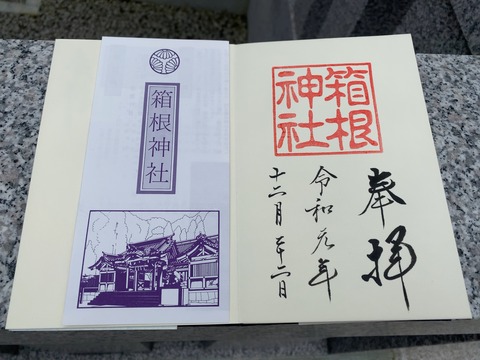 箱根神社
箱根
神社
奉拝
令和元年
十二月二十二日